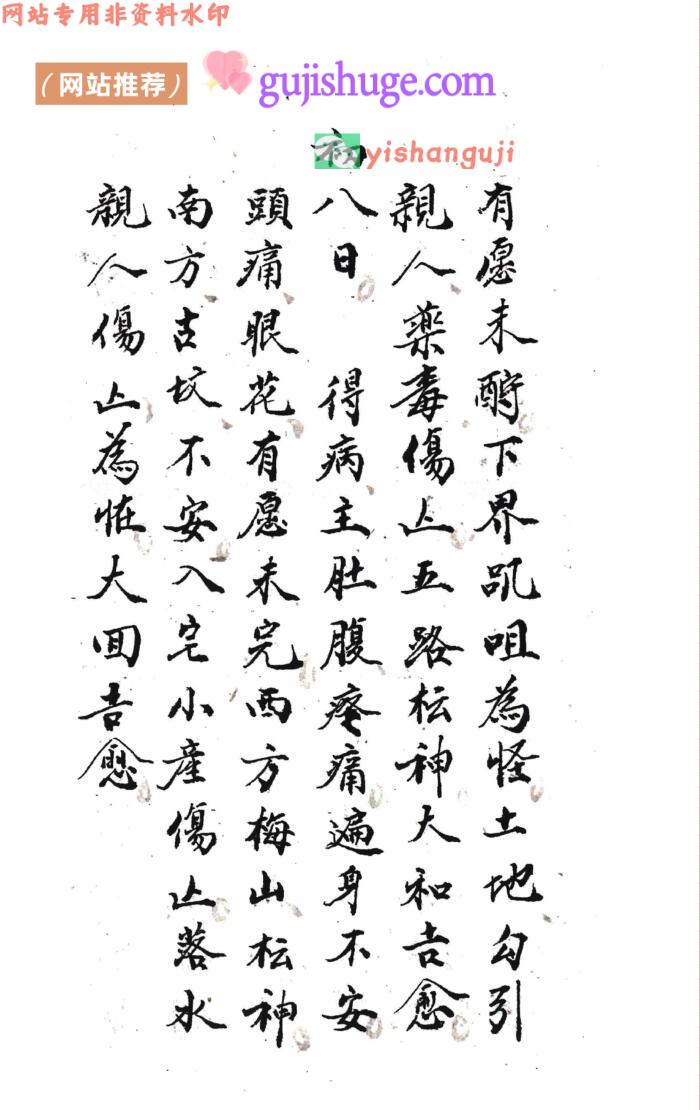 网站专用非资料水印
（网站推荐）
gujishuge.com
yishanguji
有愿未酧下界咒咀為怪土地勾引
親人藥毒傷亾五路枟神大和吉愈
初八日 得病主肚腹疼痛遍身不安
頭痛眼花有愿未完西方梅山枟神
南方古坟不安入宅小産傷亾落水
親人傷亾為怪大囬吉愈